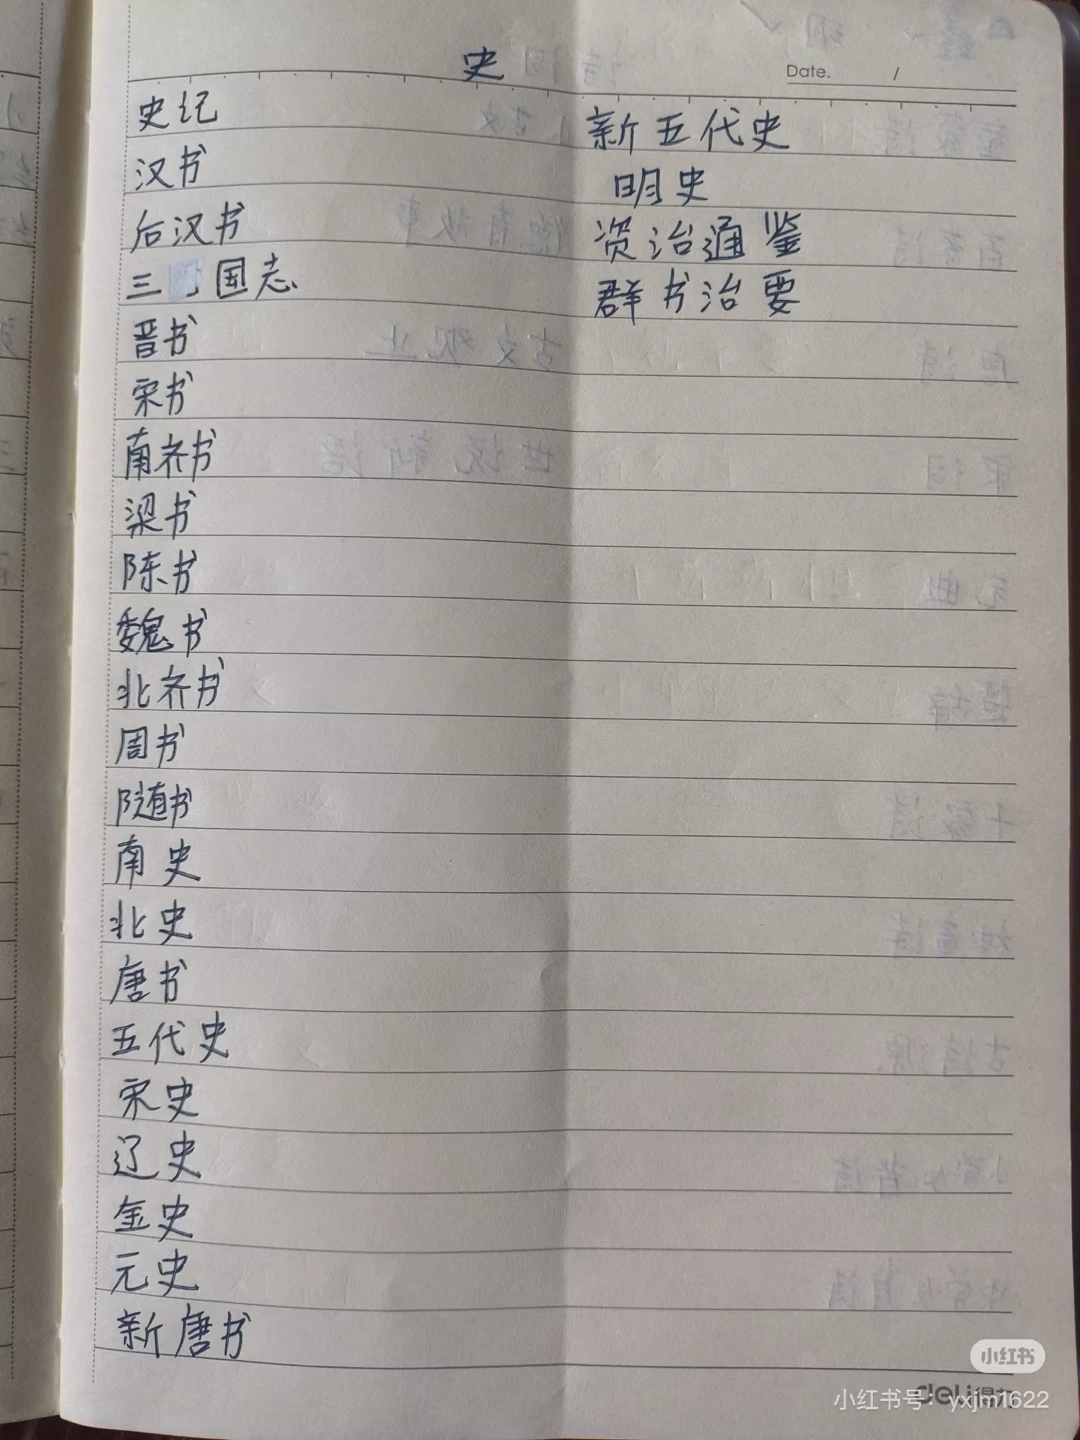 史
Date. /
史记
汉书
后汉书
三国志
晋书
宋书
南齐书
梁书
陈书
魏书
北齐书
周书
随书
南史
北史
唐书
五代史
宋史
辽史
金史
元史
新唐书
新五代史
明史
资治通鉴
群书治要
小红书
deli得力
小红书号：yxjm1622